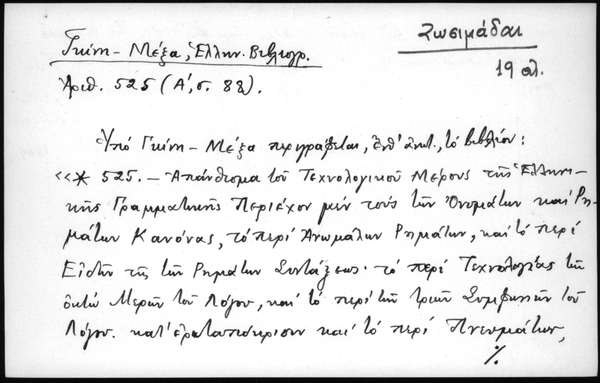 Ζωσιμάδαι
19 αἰ.
Γκίνη - Μέξα, Ἑλλην. Βιβλιογρ.
Ἀριθ. 525 (Α', σ. 88).
Ὑπό Γκίνη - Μέξα περιγράφεται, ἐνθ' ἀνωτ., τό βιβλίον:
«* 525. - Ἀπάνθισμα τοῦ Τεχνολογικοῦ Μέρους τῆς Ἑλληνι-
κῆς Γραμματικῆς Περιέχον μέν τούς τῶν Ὀνομάτων καί Ρη-
μάτων Κανόνας, τό περί Ἀνωμάλων Ρημάτων, καί τό περί
Εἰδῶν τῆς τῶν Ρημάτων Συντάξεως· τό περί Τεχνολογίας τῶν
ὀκτώ Μερῶν τοῦ Λόγου, καί τό περί τῶν τριῶν Συμφωνιῶν τοῦ
Λόγου. κατ' ἐρωταπόκρισιν καί τό περί Πνευμάτων,
%.